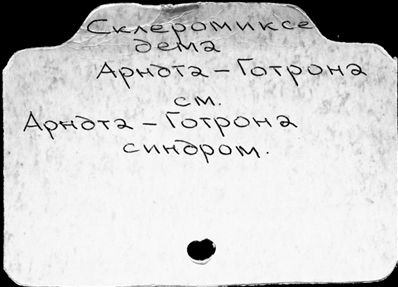 Склеромиксе
дема
Арндта – Готрона
см.
Арндта – Готрона
синдром.